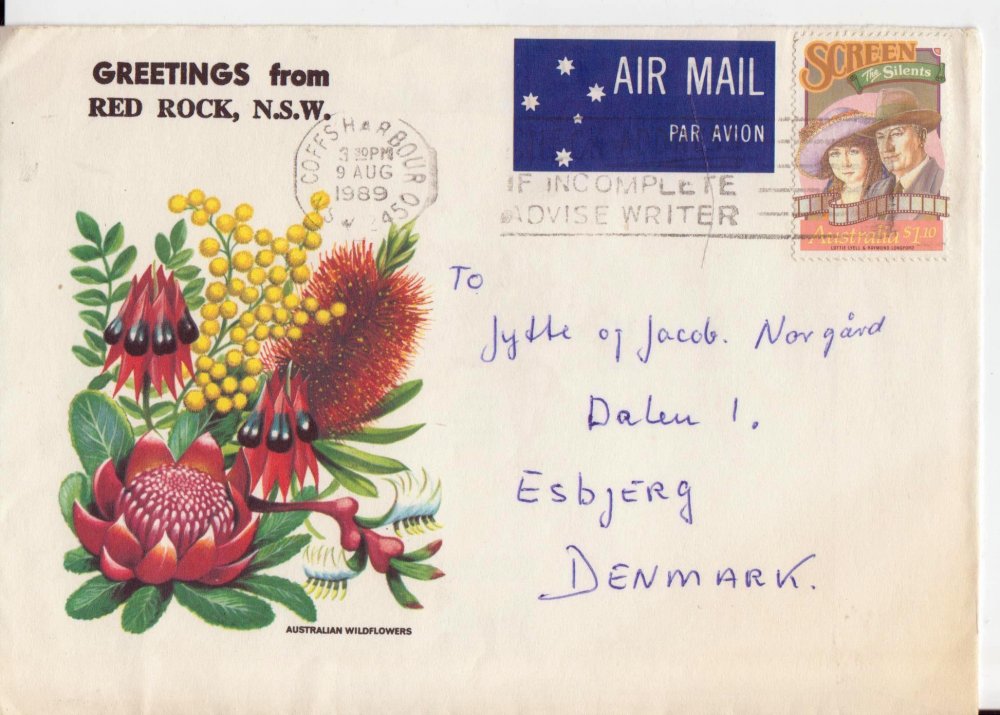 GREETINGS from
RED ROCK, N.S.W.
AIR MAIL
PAR AVION
SCREEN
The Silents
Australia $1.10
LOTTIE LYELL & RAYMOND LONGFORD
COFFS HARBOUR
3 30PM
9 AUG
1989
2450
IF INCOMPLETE
ADVISE WRITER
To
Jytte og Jacob. Norgård
Dalen 1.
Esbjerg
DENMARK.
AUSTRALIAN WILDFLOWERS